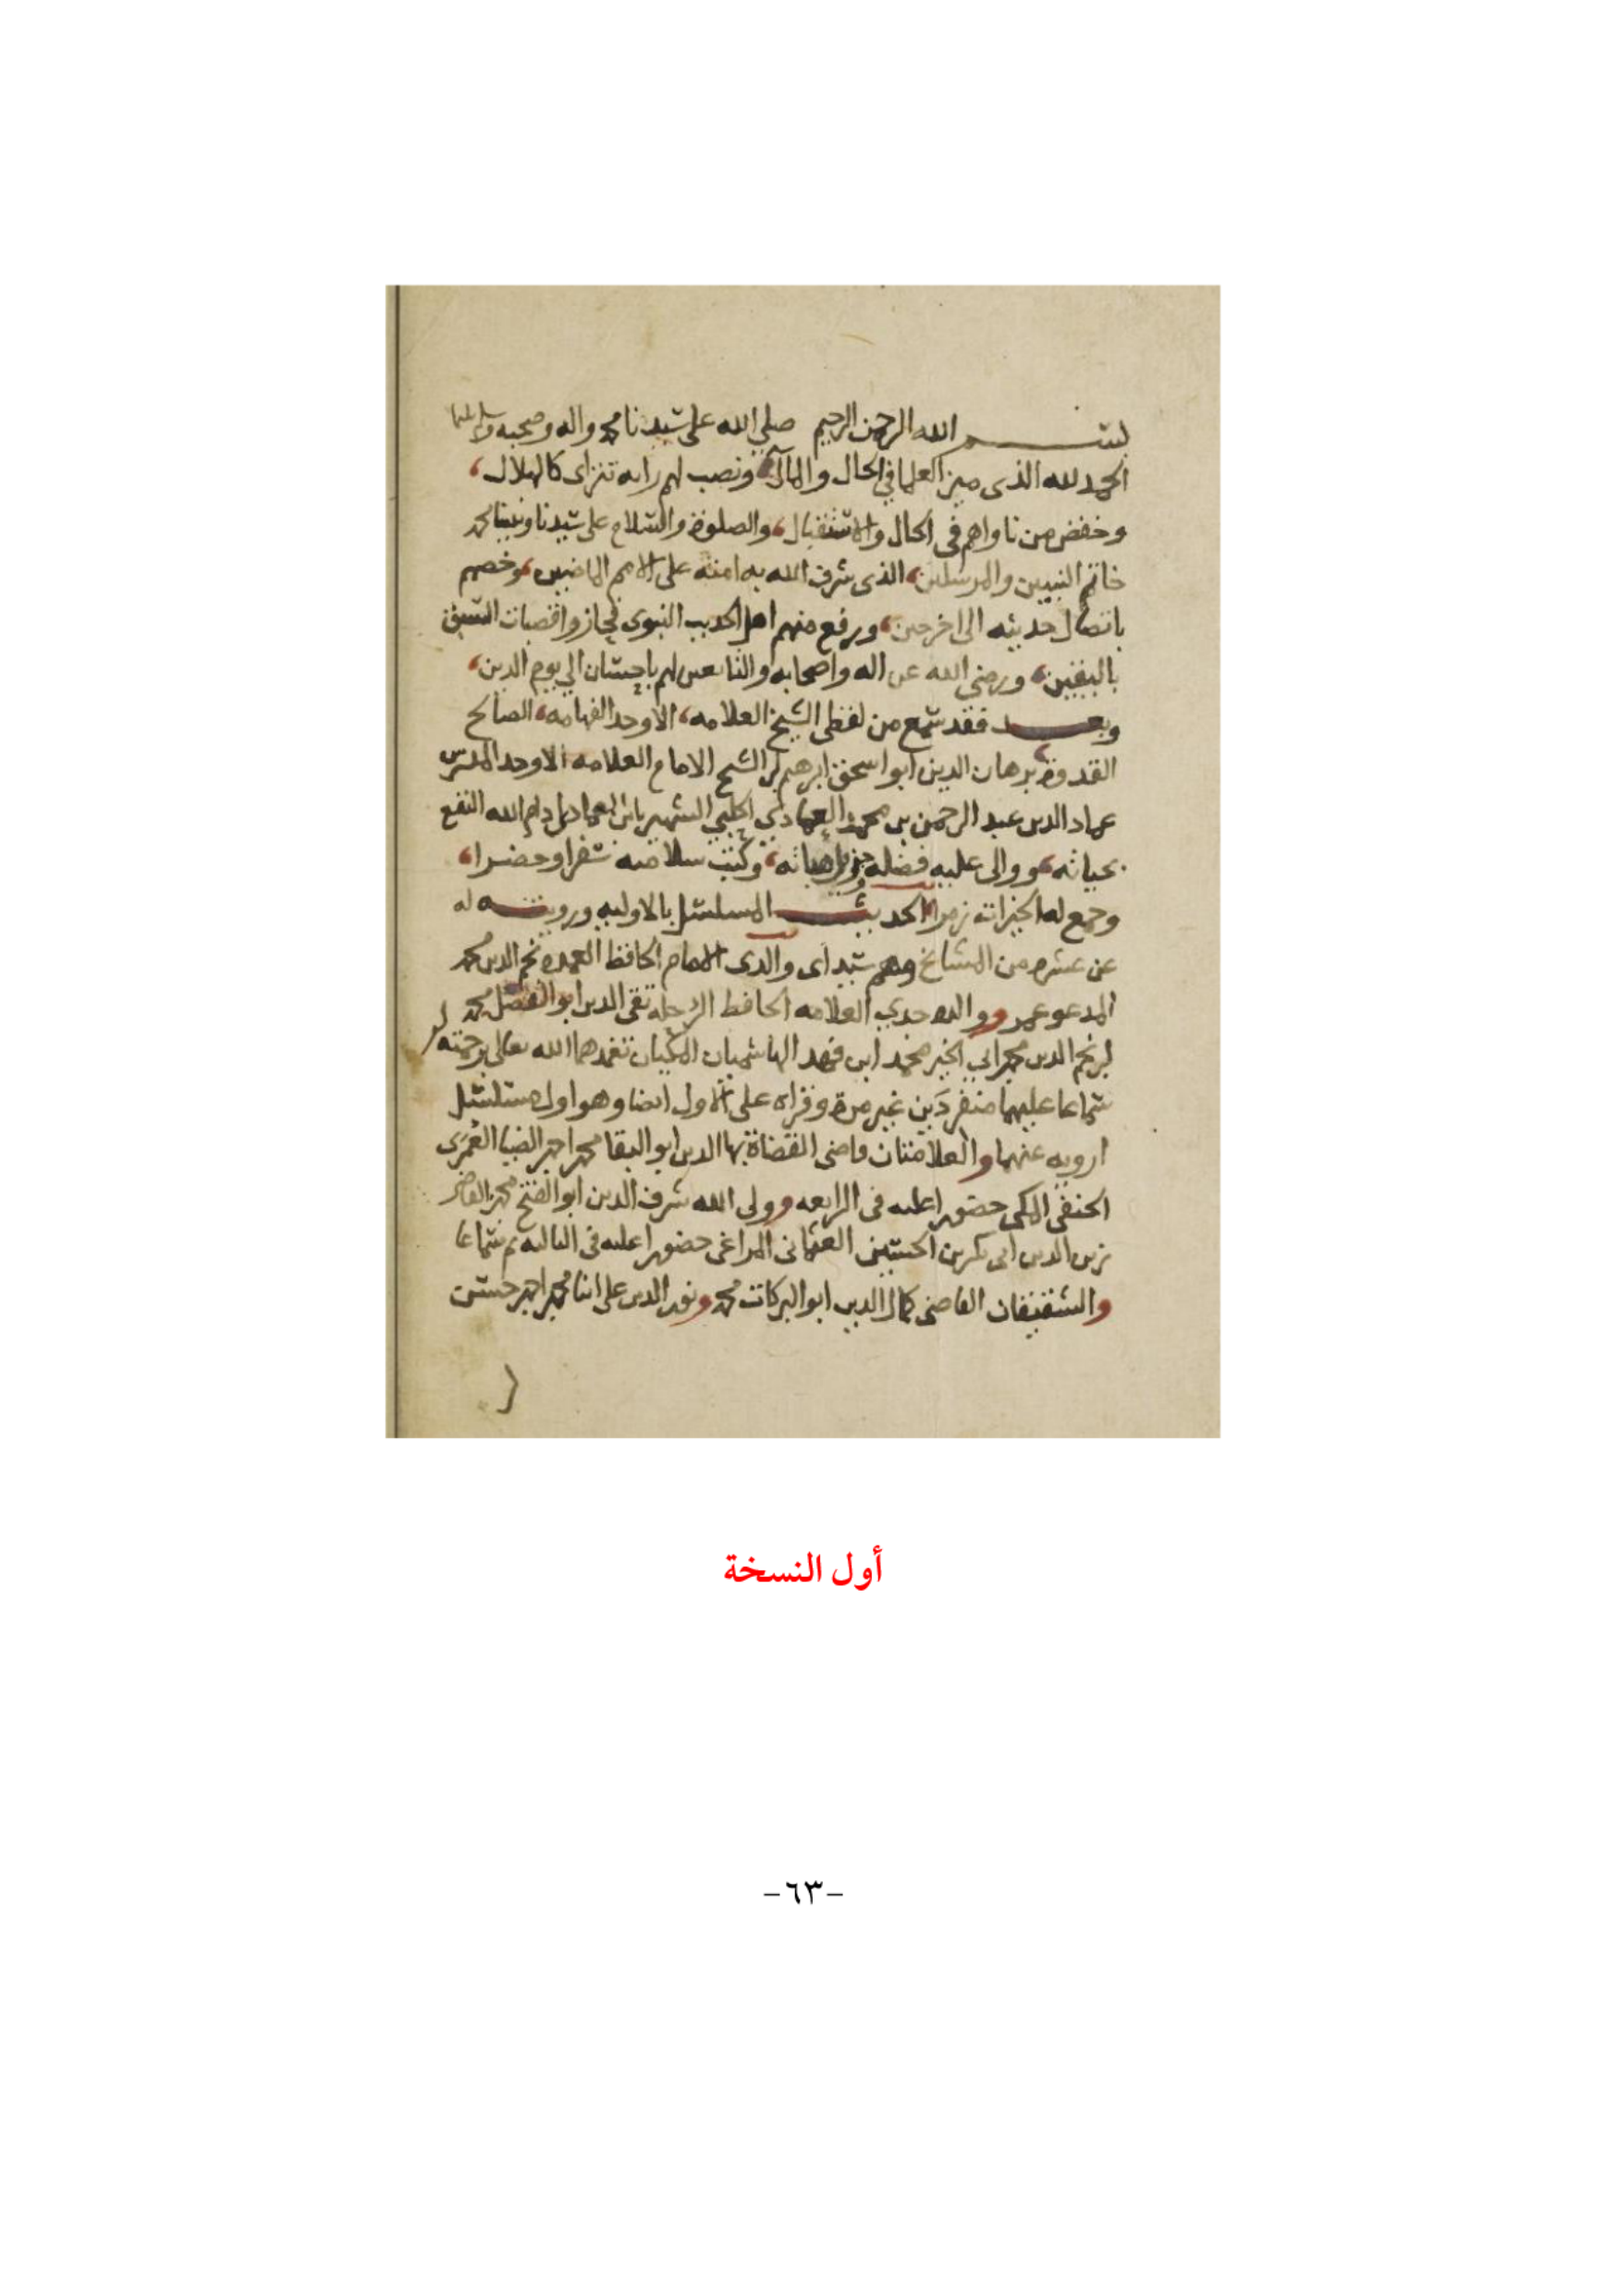 بسم الله الرحمن الرحيم صلى الله على سيدنا محمد واله وصحبه وسلم
الحمد لله الذى ميز العلما فى الحال والمآل ونصب لهم رايه تتراى كالهلال
وخفض من ناواهم فى الحال والاستقبال والصلوة والسلام على سيدنا ونبينا محمد
خاتم النبيين والمرسلين الذى شرف الله به امته على الامم الماضيين وخصهم
باتصال حديثه الى اخر حين ورفع منهم اهل الحديث النبوى فحازوا قصبات السبق
باليقين ورضي الله عن اله واصحابه والتابعين لهم باحسان الي يوم الدين
وبعد فقد سمع من لفظى الشيخ العلامه الاوحد الفهامه الصالح
القدوة برهان الدين ابو اسحق ابرهيم بن الشيخ الامام العلامه الاوحد المدرس
عماد الدين عبد الرحمن بن محمد العمادي الحلبي الشهير بابن العمادى ادام الله النفع
بحياته ووالى عليه فضله وكتب سلامته سفرا وحضرا
وجمع له الخيرات زمرا الحديث المسلسل بالاوليه ورويته له
عن عشره من المشايخ وهم سيداى والدى الامام الحافظ العمده نجم الدين محمد
المدعو عمر ووالده جدي العلامه الحافظ الرحله تقى الدين ابو الفضل محمد
بن نجم الدين محمد ابي الخير محمد ابن فهد الهاشميان المكيان تغمدهما الله تعالى برحمته
سماعا عليهما منفردين غير مرة وقراه على الاول ايضا وهو اول مسلسل
ارويه عنهما والعلامتان قاضى القضاة بها الدين ابو البقا محمد احمد الضيا العمرى
الحنفي المكى حضورا عليه فى الرابعه وولى الله شرف الدين ابو الفتح محمد القاضى
زين الدين ابى بكر بن الحسين العثمانى المراغى حضورا عليه فى الثالثه ثم سماعا
والشقيقان القاضى كمال الدين ابو البركات محمد ونور الدين على ابنا محمد احمد حسن
أول النسخة
-٦٣-